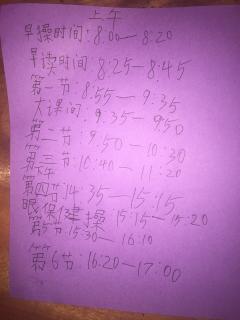 上午
早操时间:8:00—8:20
早读时间:8:25—8:45
第一节:8:55—9:35
大课间:9:35—9:50
第二节:9:50—10:30
第三节:10:40—11:20
下午
第四节14:35—15:15
眼保健操:15:15—15:20
第5节:15:30—16:10
第6节:16:20—17:00